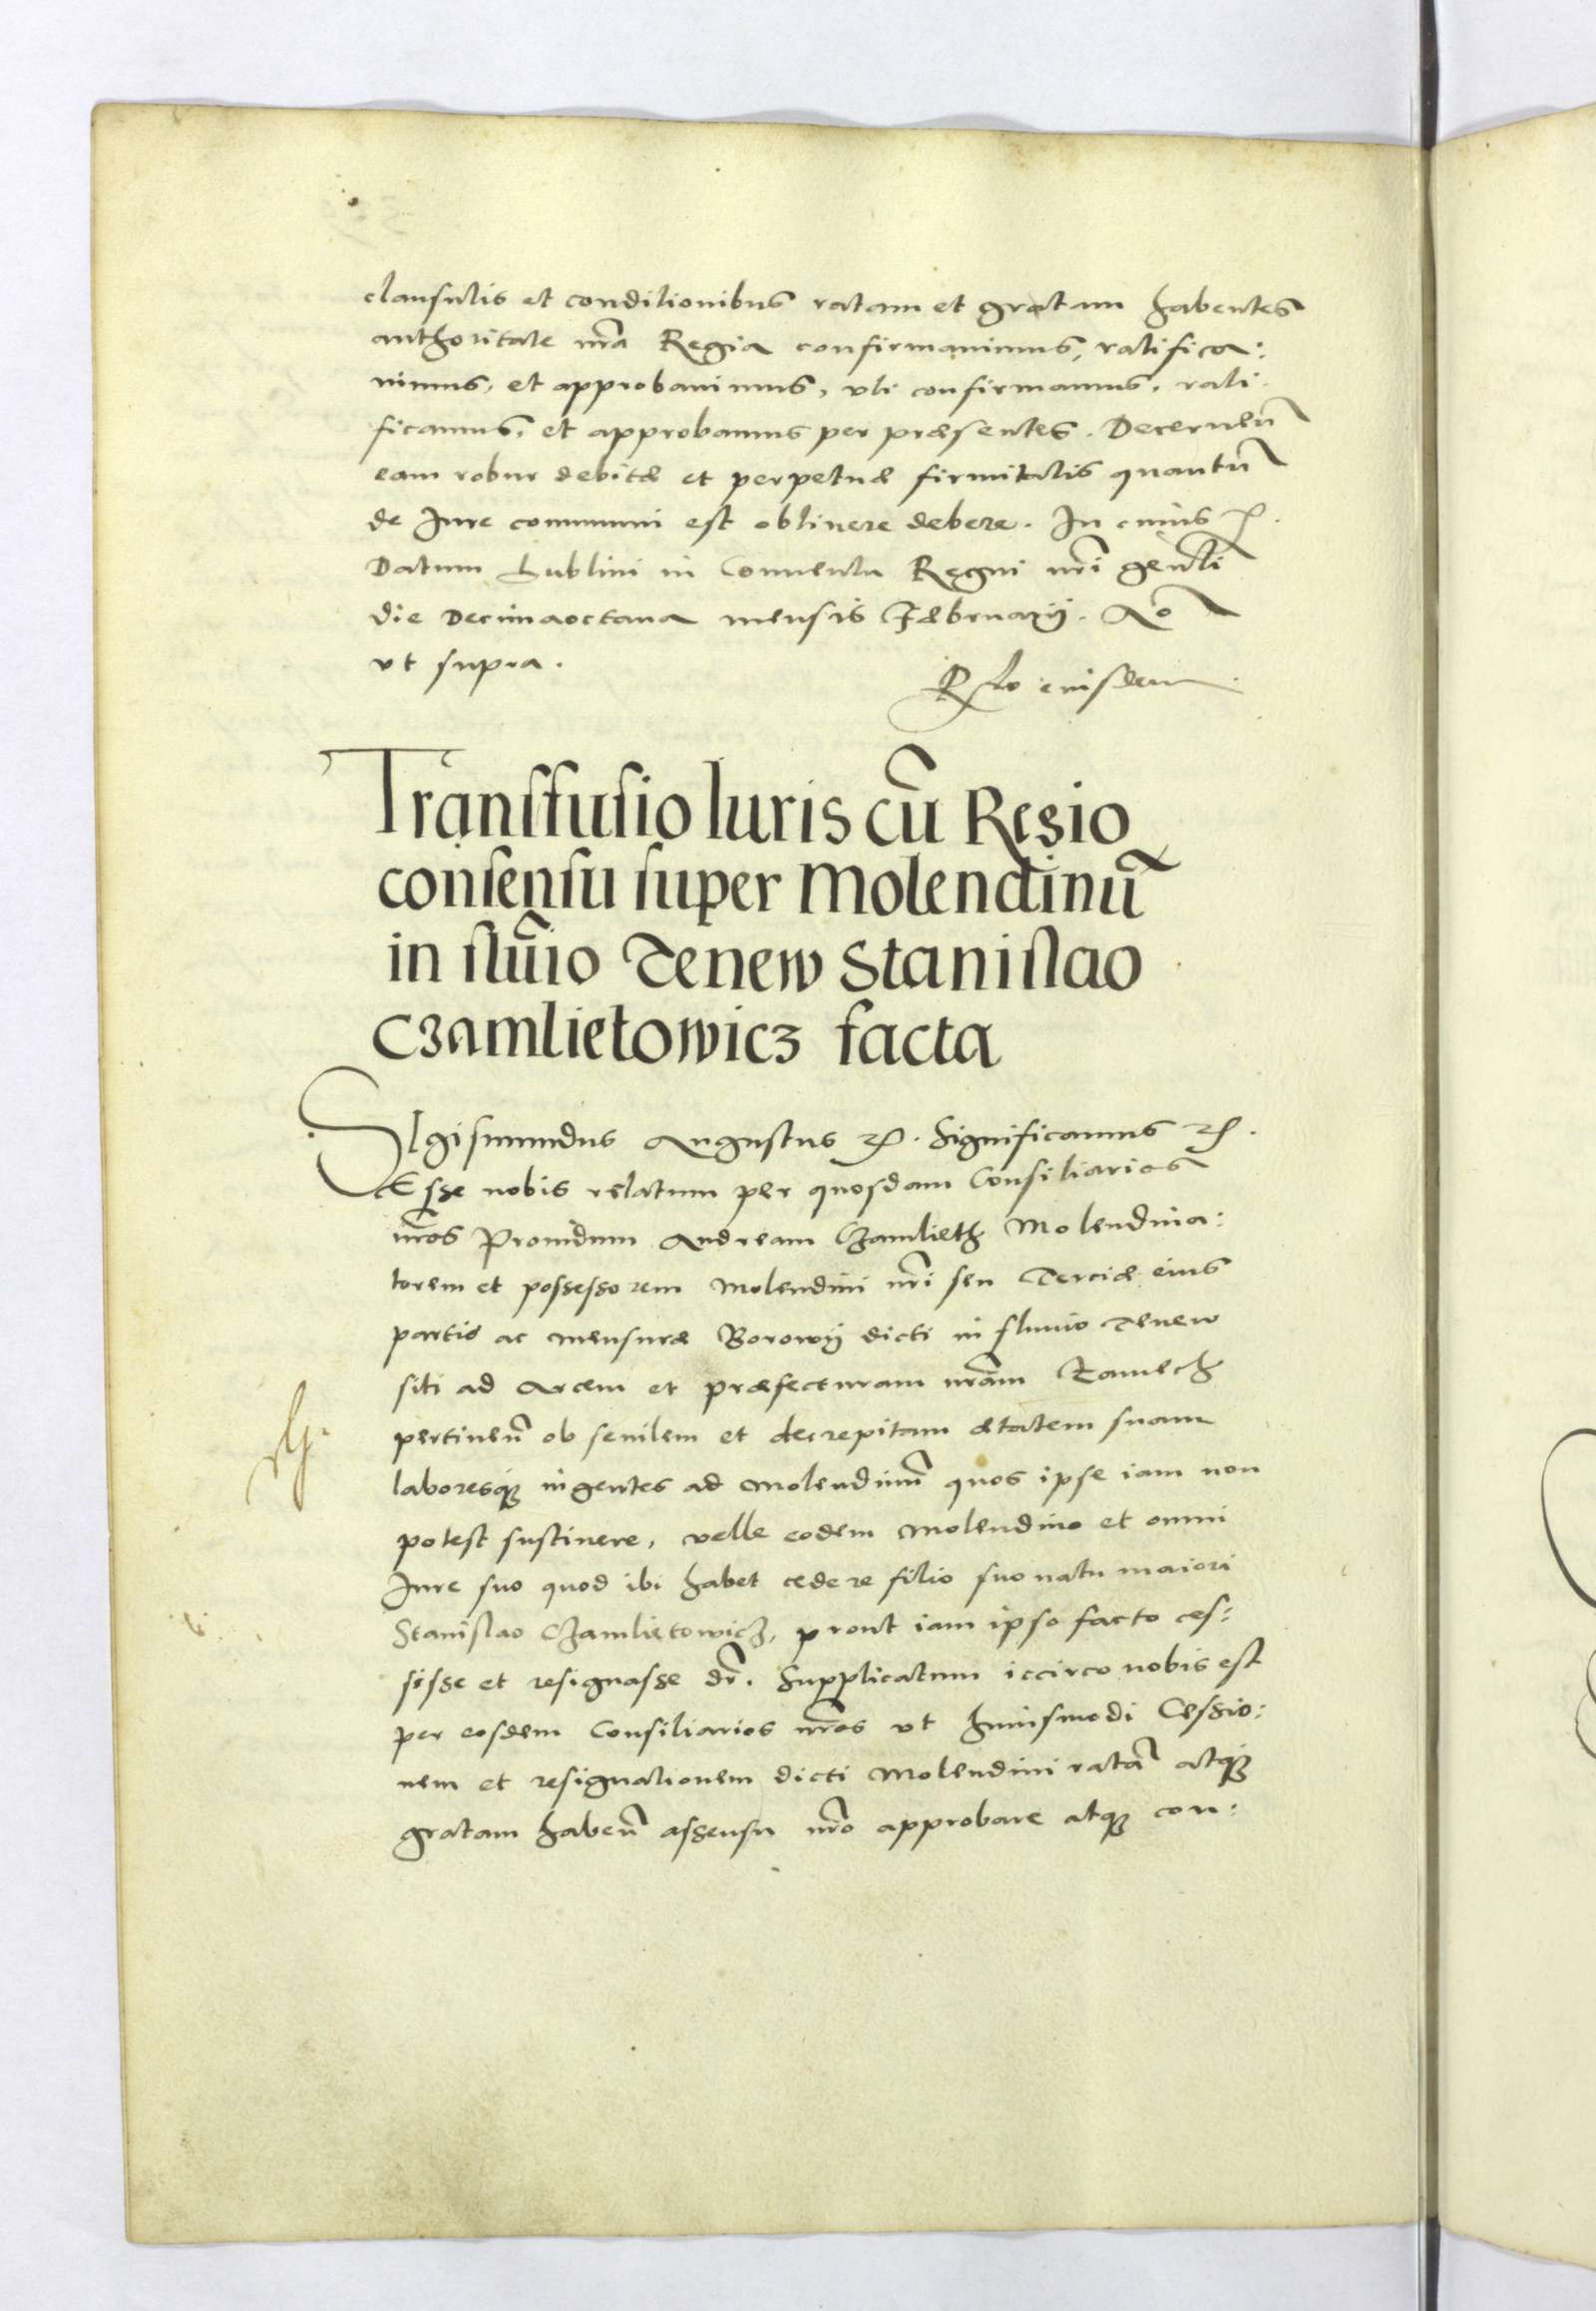 clausulis et conditionibus ratam et gratam habentes
authoritate nr̃a Regia confirmauimus, ratifica:
uimus, et approbauimus, vti confirmamus, rati
ficamus, et approbamus per præsentes. Decernen̄
eam robur debitæ et perpetuæ firmitatis quantū
de Iure communi est obtinere debere. In cuius
Datum Lublini in Conuentu Regni nr̃i gen̄li
die Decimaoctaua mensis Februarij. Ao
vt supra.
Rlo eiusdem
Transfusio Iuris cū Regio
consensu super Molendinū
in fluuio Tenew Stanislao
Czamlietowicz facta
SIgismundus Augustus etc. Significamus etc.
Esse nobis relatum per quosdam Consiliarios
nr̃os Prouidum Andream Czamlieth Molendina:
torem et possessorem Molendini nr̃i seu Terciæ eius
partis ac mensuræ Borowij dicti in fluuio Tenew
siti ad Arcem et præfecturam nr̃am Zamech
pertinen̄ ob senilem et decrepitam ætatem suam
laboresq; ingentes ad Molendinū quos ipse iam non
potest sustinere, velle eodem Molendino et omni
Iure suo quod ibi habet cedere filio suo natu maiori
Stanislao Czamlietowicz, prout iam ipso facto ces:
sisse et resignasse dr̃. Supplicatum iccirco nobis est
per eosdem Consiliarios nr̃os vt huiusmodi Cessio:
nem et resignationem dicti Molendini ratā atq;
gratam haben̄ assensu nr̃o approbare atq; con: